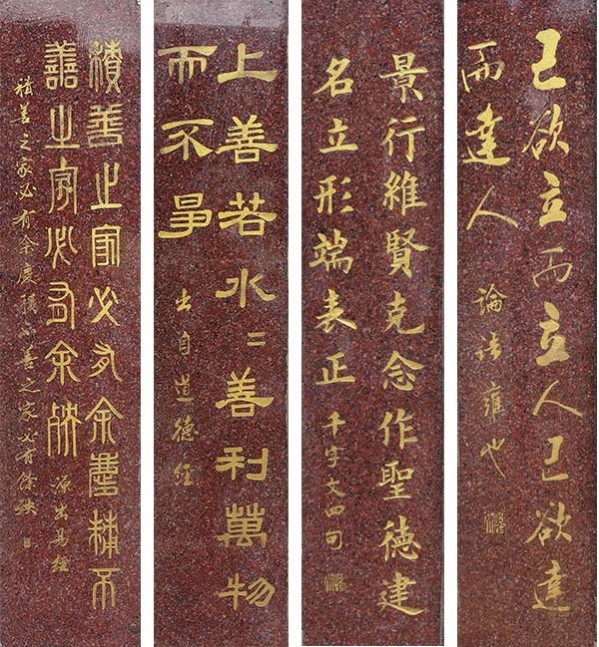 己欲立而立人己欲達
而達人
論語雍也
景行維賢克念作聖德建
名立形端表正
千字文四句
上善若水〻善利萬物
而不爭
出自道德經
積善之家必有余慶積不
善之家必有余殃
源出易經
積善之家必有余慶積不善之家必有餘殃